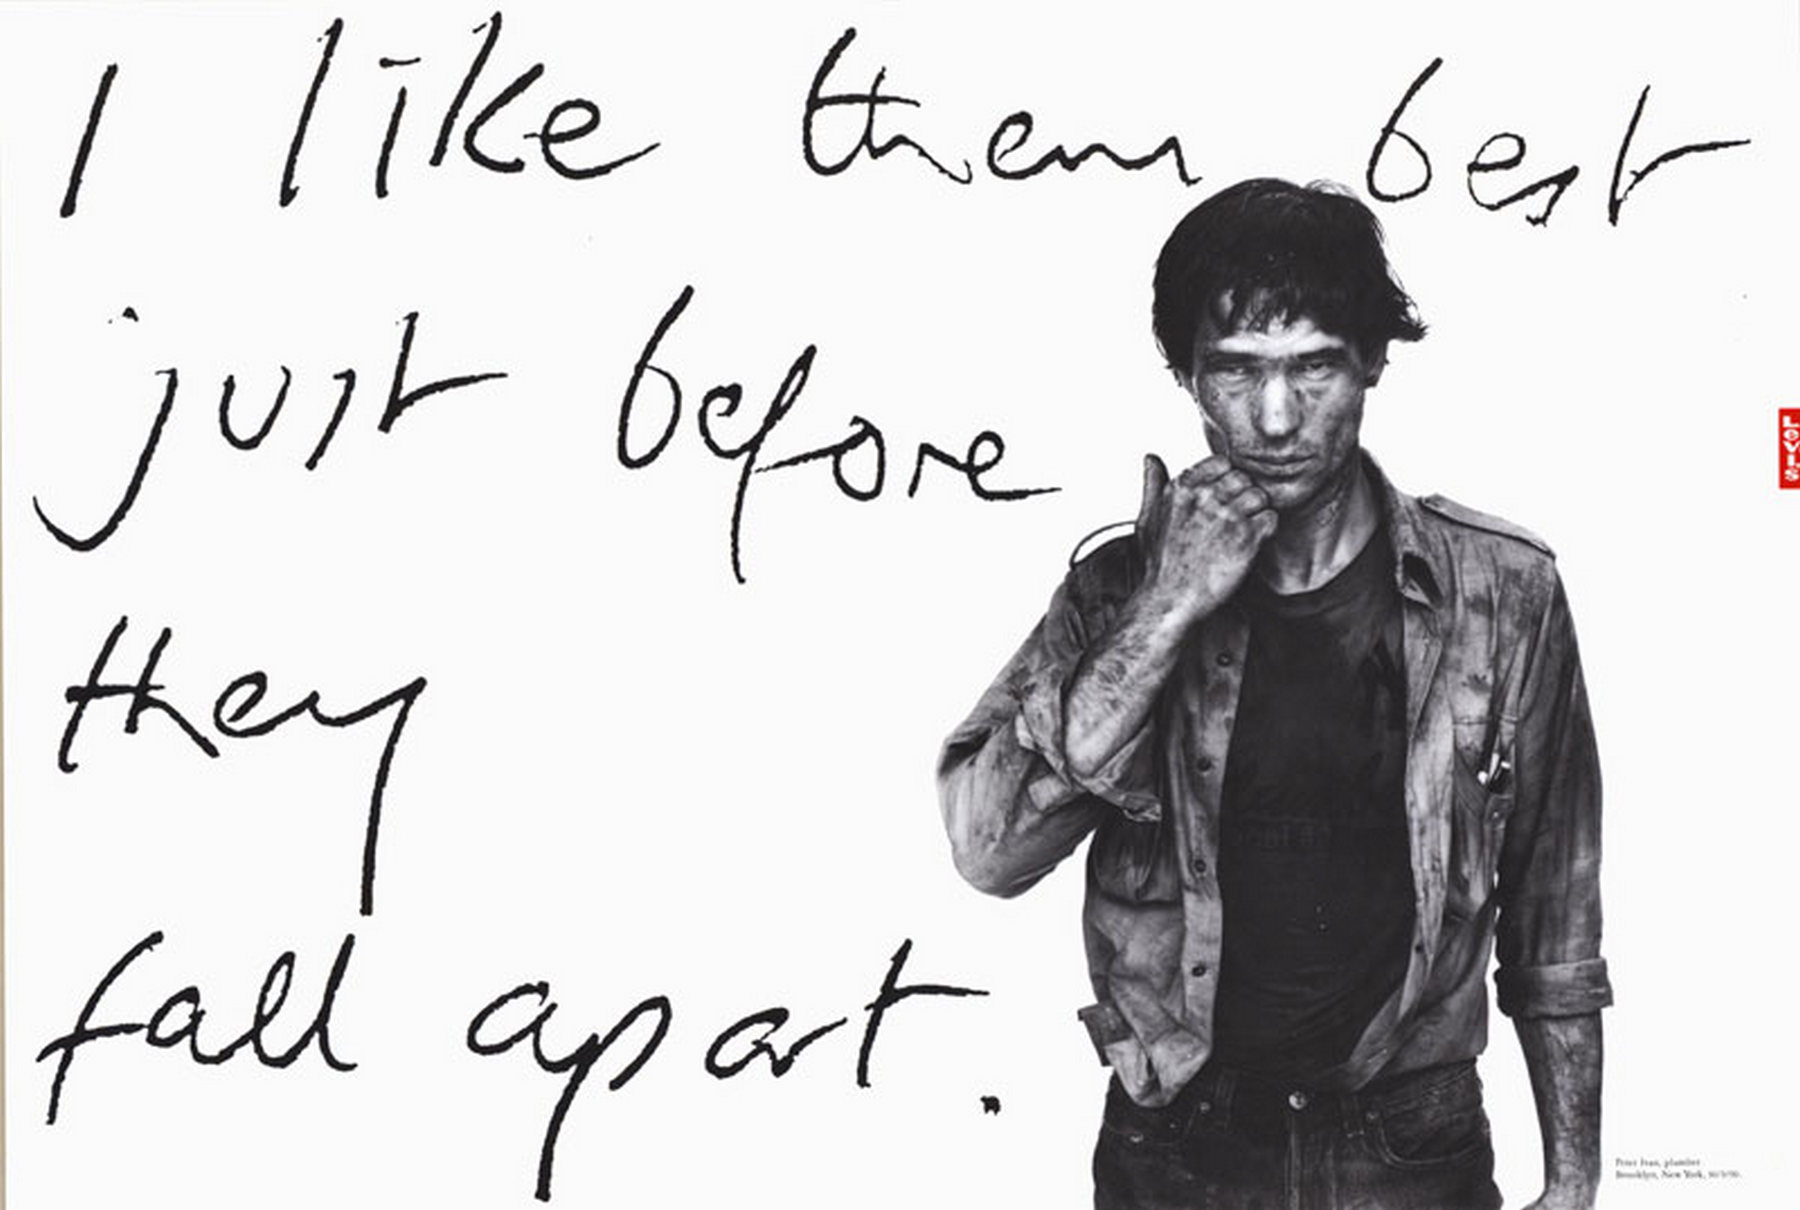 I like them best
just before
they
fall apart.
Levi's
Peter Ivan, plumber
Brooklyn, New York,